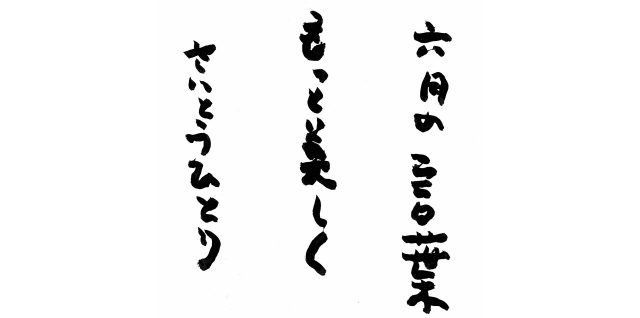 六月の言葉
もっと美しく
さいとうひとり